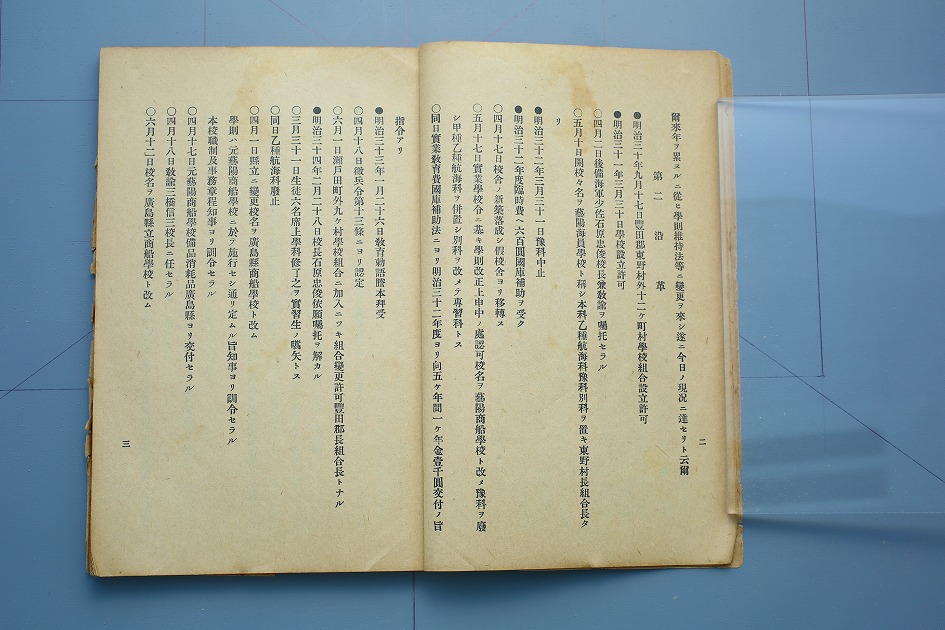 爾來年ヲ累ヌルニ從ヒ學則維持法等ニ變更ヲ來シ遂ニ今日ノ現況ニ達セリト云爾
第二 沿革
●明治三十年九月十七日豐田郡東野村外十二ケ町村學校組合設立許可
●明治三十一年三月三十日學校設立許可
〇四月二日後備海軍少佐石原忠俊校長兼敎諭ヲ囑托セラル
〇五月十日開校々名ヲ藝陽海員學校ト稱シ本科乙種航海科豫科別科ヲ置キ東野村長組合長タ
リ
●明治三十二年三月三十一日豫科中止
●明治三十二年度臨時費ヘ六百圓國庫補助ヲ受ク
〇四月十七日校舍ノ新築落成シ假校舍ヨリ移轉ス
〇五月十七日實業學校令ニ基キ學則改正上申ノ處認可校名ヲ藝陽商船學校ト改メ豫科ヲ廢
シ甲種乙種航海科ヲ併置シ別科ヲ改メテ專習科トス
〇同日實業敎育費國庫補助法ニヨリ明治三十二年度ヨリ向五ケ年間一ケ年金壹千圓交付ノ旨
二
指令アリ
●明治三十三年一月二十六日敎育勅語謄本拜受
〇四月十八日徵兵令第十三條ニヨリ認定
〇六月一日瀨戸田町外九ケ村學校組合ニ加入ニツキ組合變更許可豐田郡長組合長トナル
●明治三十四年二月二十八日校長石原忠俊依願囑托ヲ解カル
〇三月三十一日生徒六名席上學科修了之ヲ實習生ノ嚆矢トス
〇同日乙種航海科廢止
〇四月一日縣立ニ變更校名ヲ廣島縣商船學校ト改ム
學則ハ元藝陽商船學校ニ於テ施行セシ通リ定ムル旨知事ヨリ訓令セラル
本校職制及事務章程知事ヨリ訓令セラル
〇四月十七日元藝陽商船學校備品消耗品廣島縣ヨリ交付セラル
〇四月十八日敎諭三橋信三校長ニ任セラル
〇六月十二日校名ヲ廣島縣立商船學校ト改ム
三